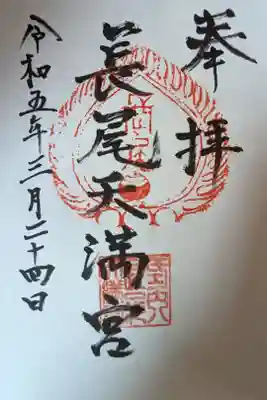 奉拝
長尾天満宮
令和五年三月二十四日